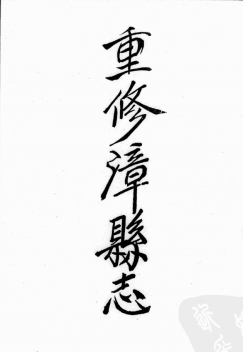 重修漳縣志